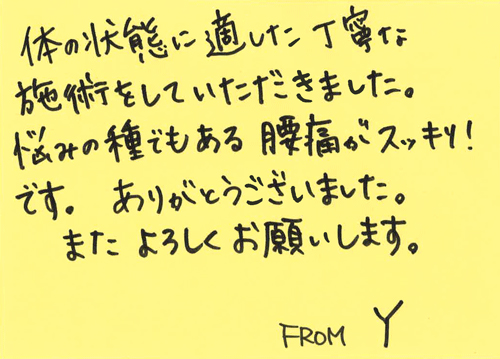 体の状態に適した丁寧な
施術をしていただきました。
悩みの種でもある腰痛がスッキリ！
です。 ありがとうございました。
また よろしく お願いします。
FROM Y